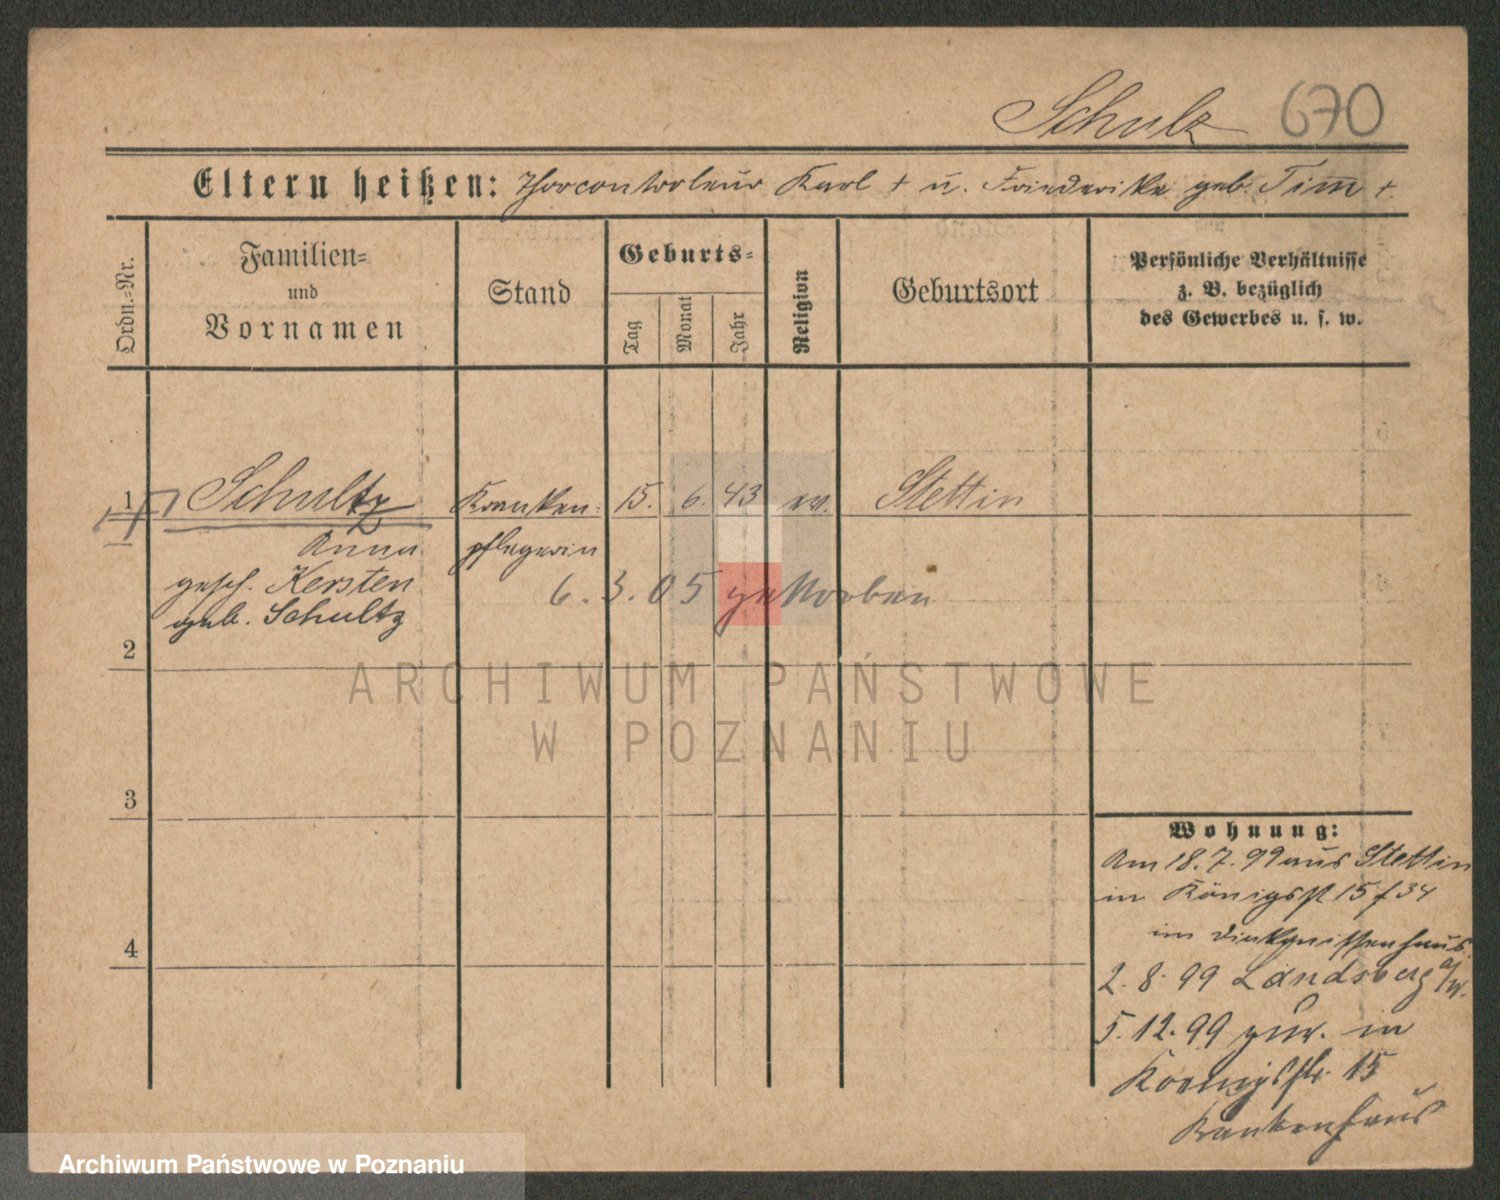 Schulz 670
Eltern heißen: Thorcontroleur Karl † u. Friederike geb. Timm †.
Ordn.=Nr.
Familien=
und
Vornamen
Stand
Geburts=
Tag
Monat
Jahr
Religion
Geburtsort
Persönliche Verhältnisse
z. B. bezüglich
des Gewerbes u. s. w.
1 Schultz Kranken= 15. 6. 43 ev. Stettin
Anna pflegerin
gesch. Kersten
6. 3. 05 gestorben
geb. Schultz
2
3
4
Wohnung:
Am 18. 7. 99 aus Stettin
in Königsst 15 f 34
im Diakonissenhaus.
2. 8. 99 Landsberg a/W.
5. 12. 99 zur. in
Koenigsstr. 15
Krankenhaus
ARCHIWUM PAŃSTWOWE
W POZNANIU
Archiwum Państwowe w Poznaniu